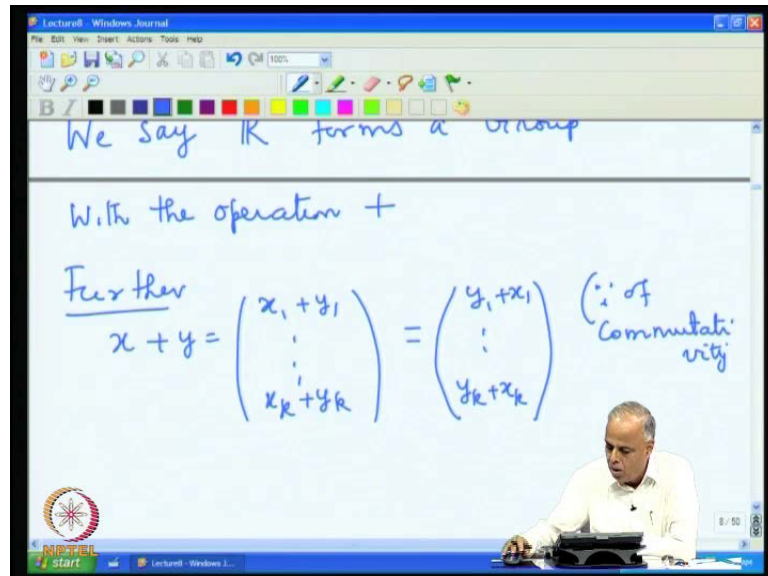 Lecture8 - Windows Journal
File Edit View Insert Actions Tools Help
100%
B I
We say ℝ forms a Group
With the operation +
Further
x + y = ( x₁ + y₁ ⋮ xₖ + yₖ ) = ( y₁ + x₁ ⋮ yₖ + xₖ ) (∵ of
Commutati
vity
8 / 50
NPTEL
start Lecture8 - Windows J...